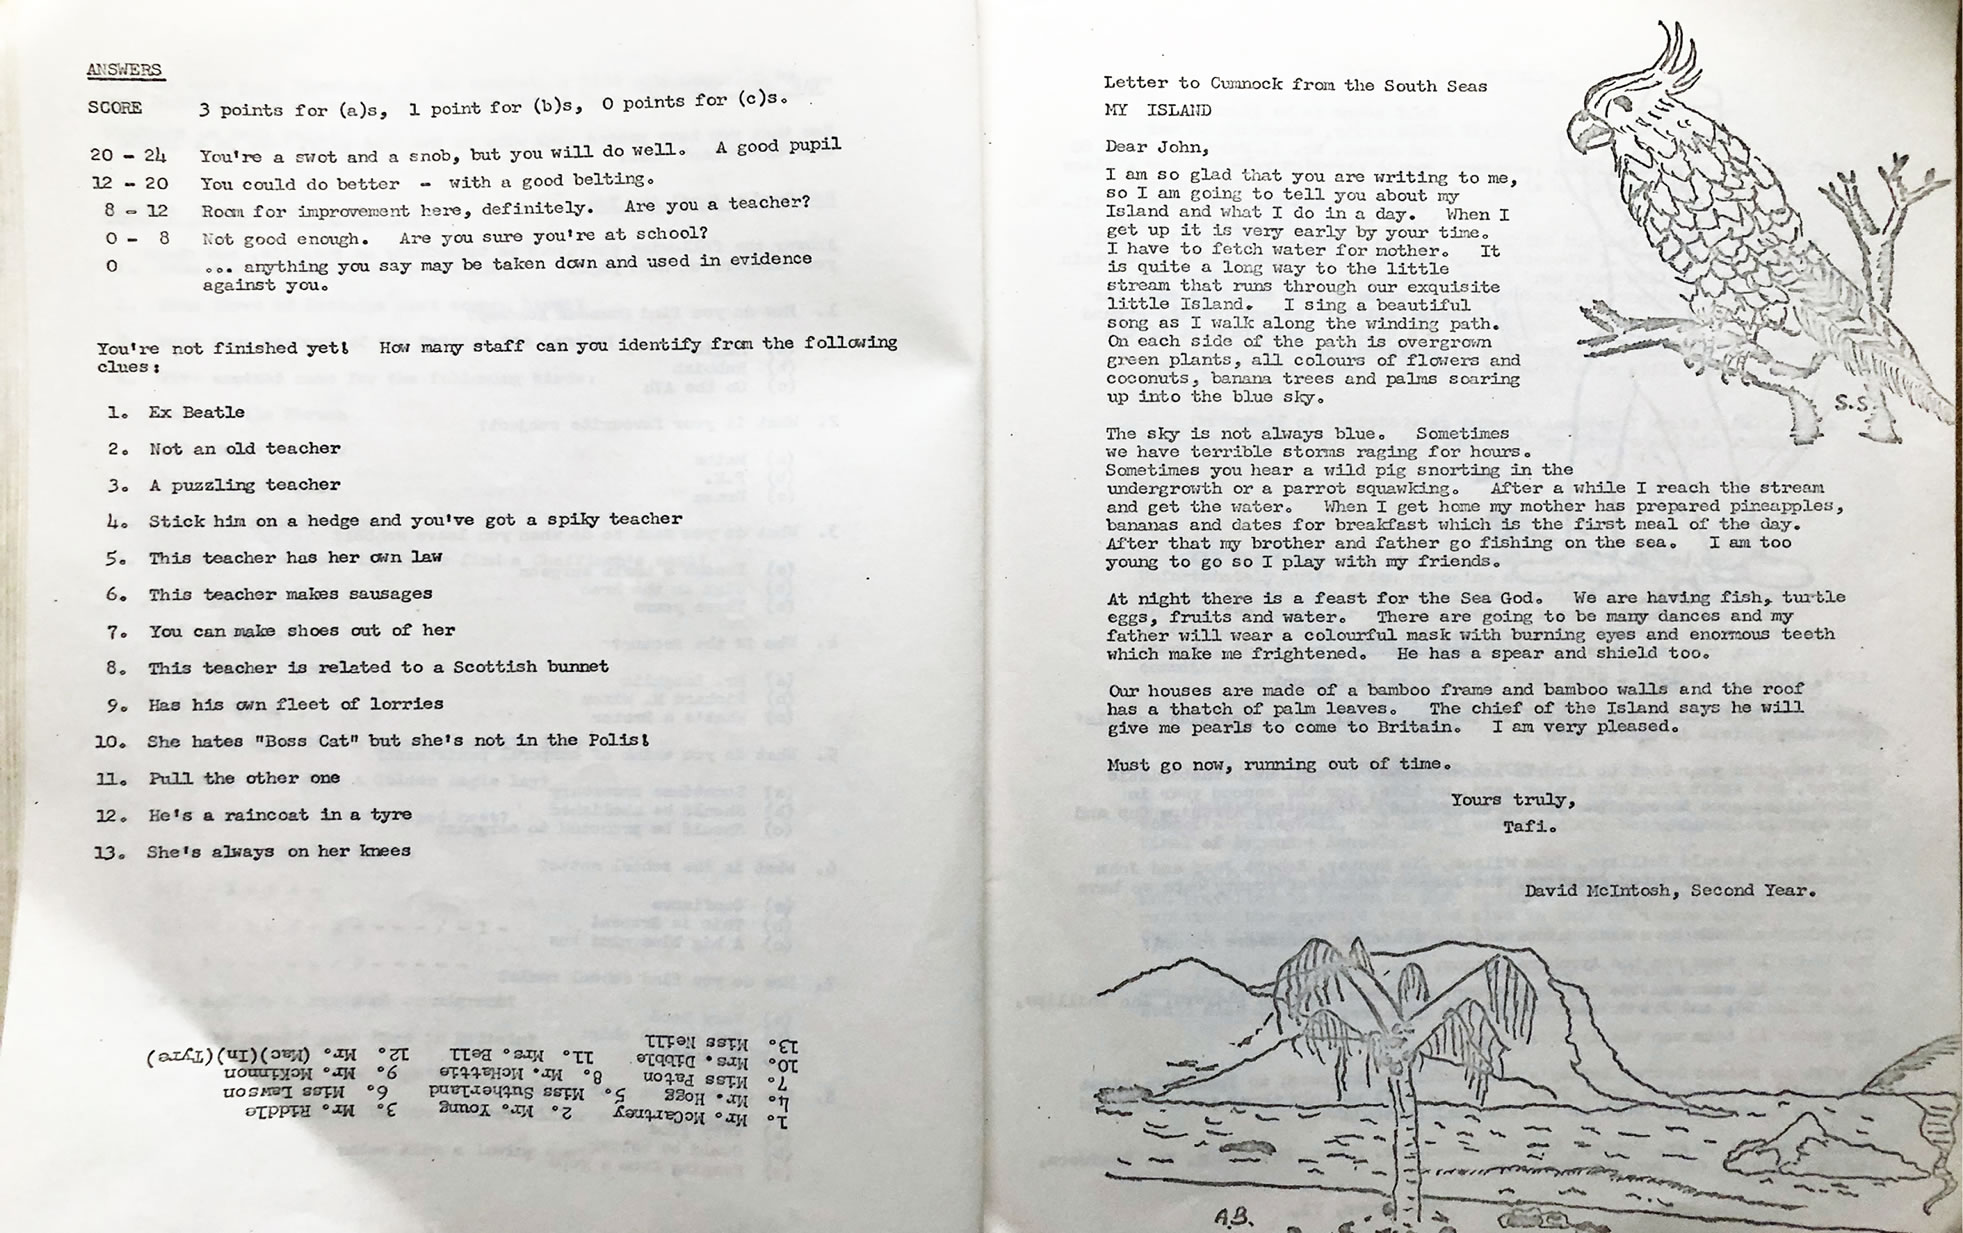 ANSWERS
SCORE 3 points for (a)s, 1 point for (b)s, 0 points for (c)s.
20 - 24 You're a swot and a snob, but you will do well. A good pupil
12 - 20 You could do better - with a good belting.
8 - 12 Room for improvement here, definitely. Are you a teacher?
0 - 8 Not good enough. Are you sure you're at school?
0 ... anything you say may be taken down and used in evidence
against you.
You're not finished yet! How many staff can you identify from the following
clues:
1. Ex Beatle
2. Not an old teacher
3. A puzzling teacher
4. Stick him on a hedge and you've got a spiky teacher
5. This teacher has her own law
6. This teacher makes sausages
7. You can make shoes out of her
8. This teacher is related to a Scottish bunnet
9. Has his own fleet of lorries
10. She hates "Boss Cat" but she's not in the Polis!
11. Pull the other one
12. He's a raincoat in a tyre
13. She's always on her knees
1. Mr. McCartney 2. Mr. Young 3. Mr. Riddle
4. Mr. Hogg 5. Miss Sutherland 6. Miss Lawson
7. Miss Paton 8. Mr. McHattie 9. Mr. McKinnon
10. Mrs. Dibble 11. Mrs. Bell 12. Mr. (Mac)(In)(Tyre)
13. Miss Neill
Letter to Cumnock from the South Seas
MY ISLAND
Dear John,
I am so glad that you are writing to me,
so I am going to tell you about my
Island and what I do in a day. When I
get up it is very early by your time.
I have to fetch water for mother. It
is quite a long way to the little
stream that runs through our exquisite
little Island. I sing a beautiful
song as I walk along the winding path.
On each side of the path is overgrown
green plants, all colours of flowers and
coconuts, banana trees and palms soaring
up into the blue sky.
S.S.
The sky is not always blue. Sometimes
we have terrible storms raging for hours.
Sometimes you hear a wild pig snorting in the
undergrowth or a parrot squawking. After a while I reach the stream
and get the water. When I get home my mother has prepared pineapples,
bananas and dates for breakfast which is the first meal of the day.
After that my brother and father go fishing on the sea. I am too
young to go so I play with my friends.
At night there is a feast for the Sea God. We are having fish, turtle
eggs, fruits and water. There are going to be many dances and my
father will wear a colourful mask with burning eyes and enormous teeth
which make me frightened. He has a spear and shield too.
Our houses are made of a bamboo frame and bamboo walls and the roof
has a thatch of palm leaves. The chief of the Island says he will
give me pearls to come to Britain. I am very pleased.
Must go now, running out of time.
Yours truly,
Tafi.
David McIntosh, Second Year.
A.B.